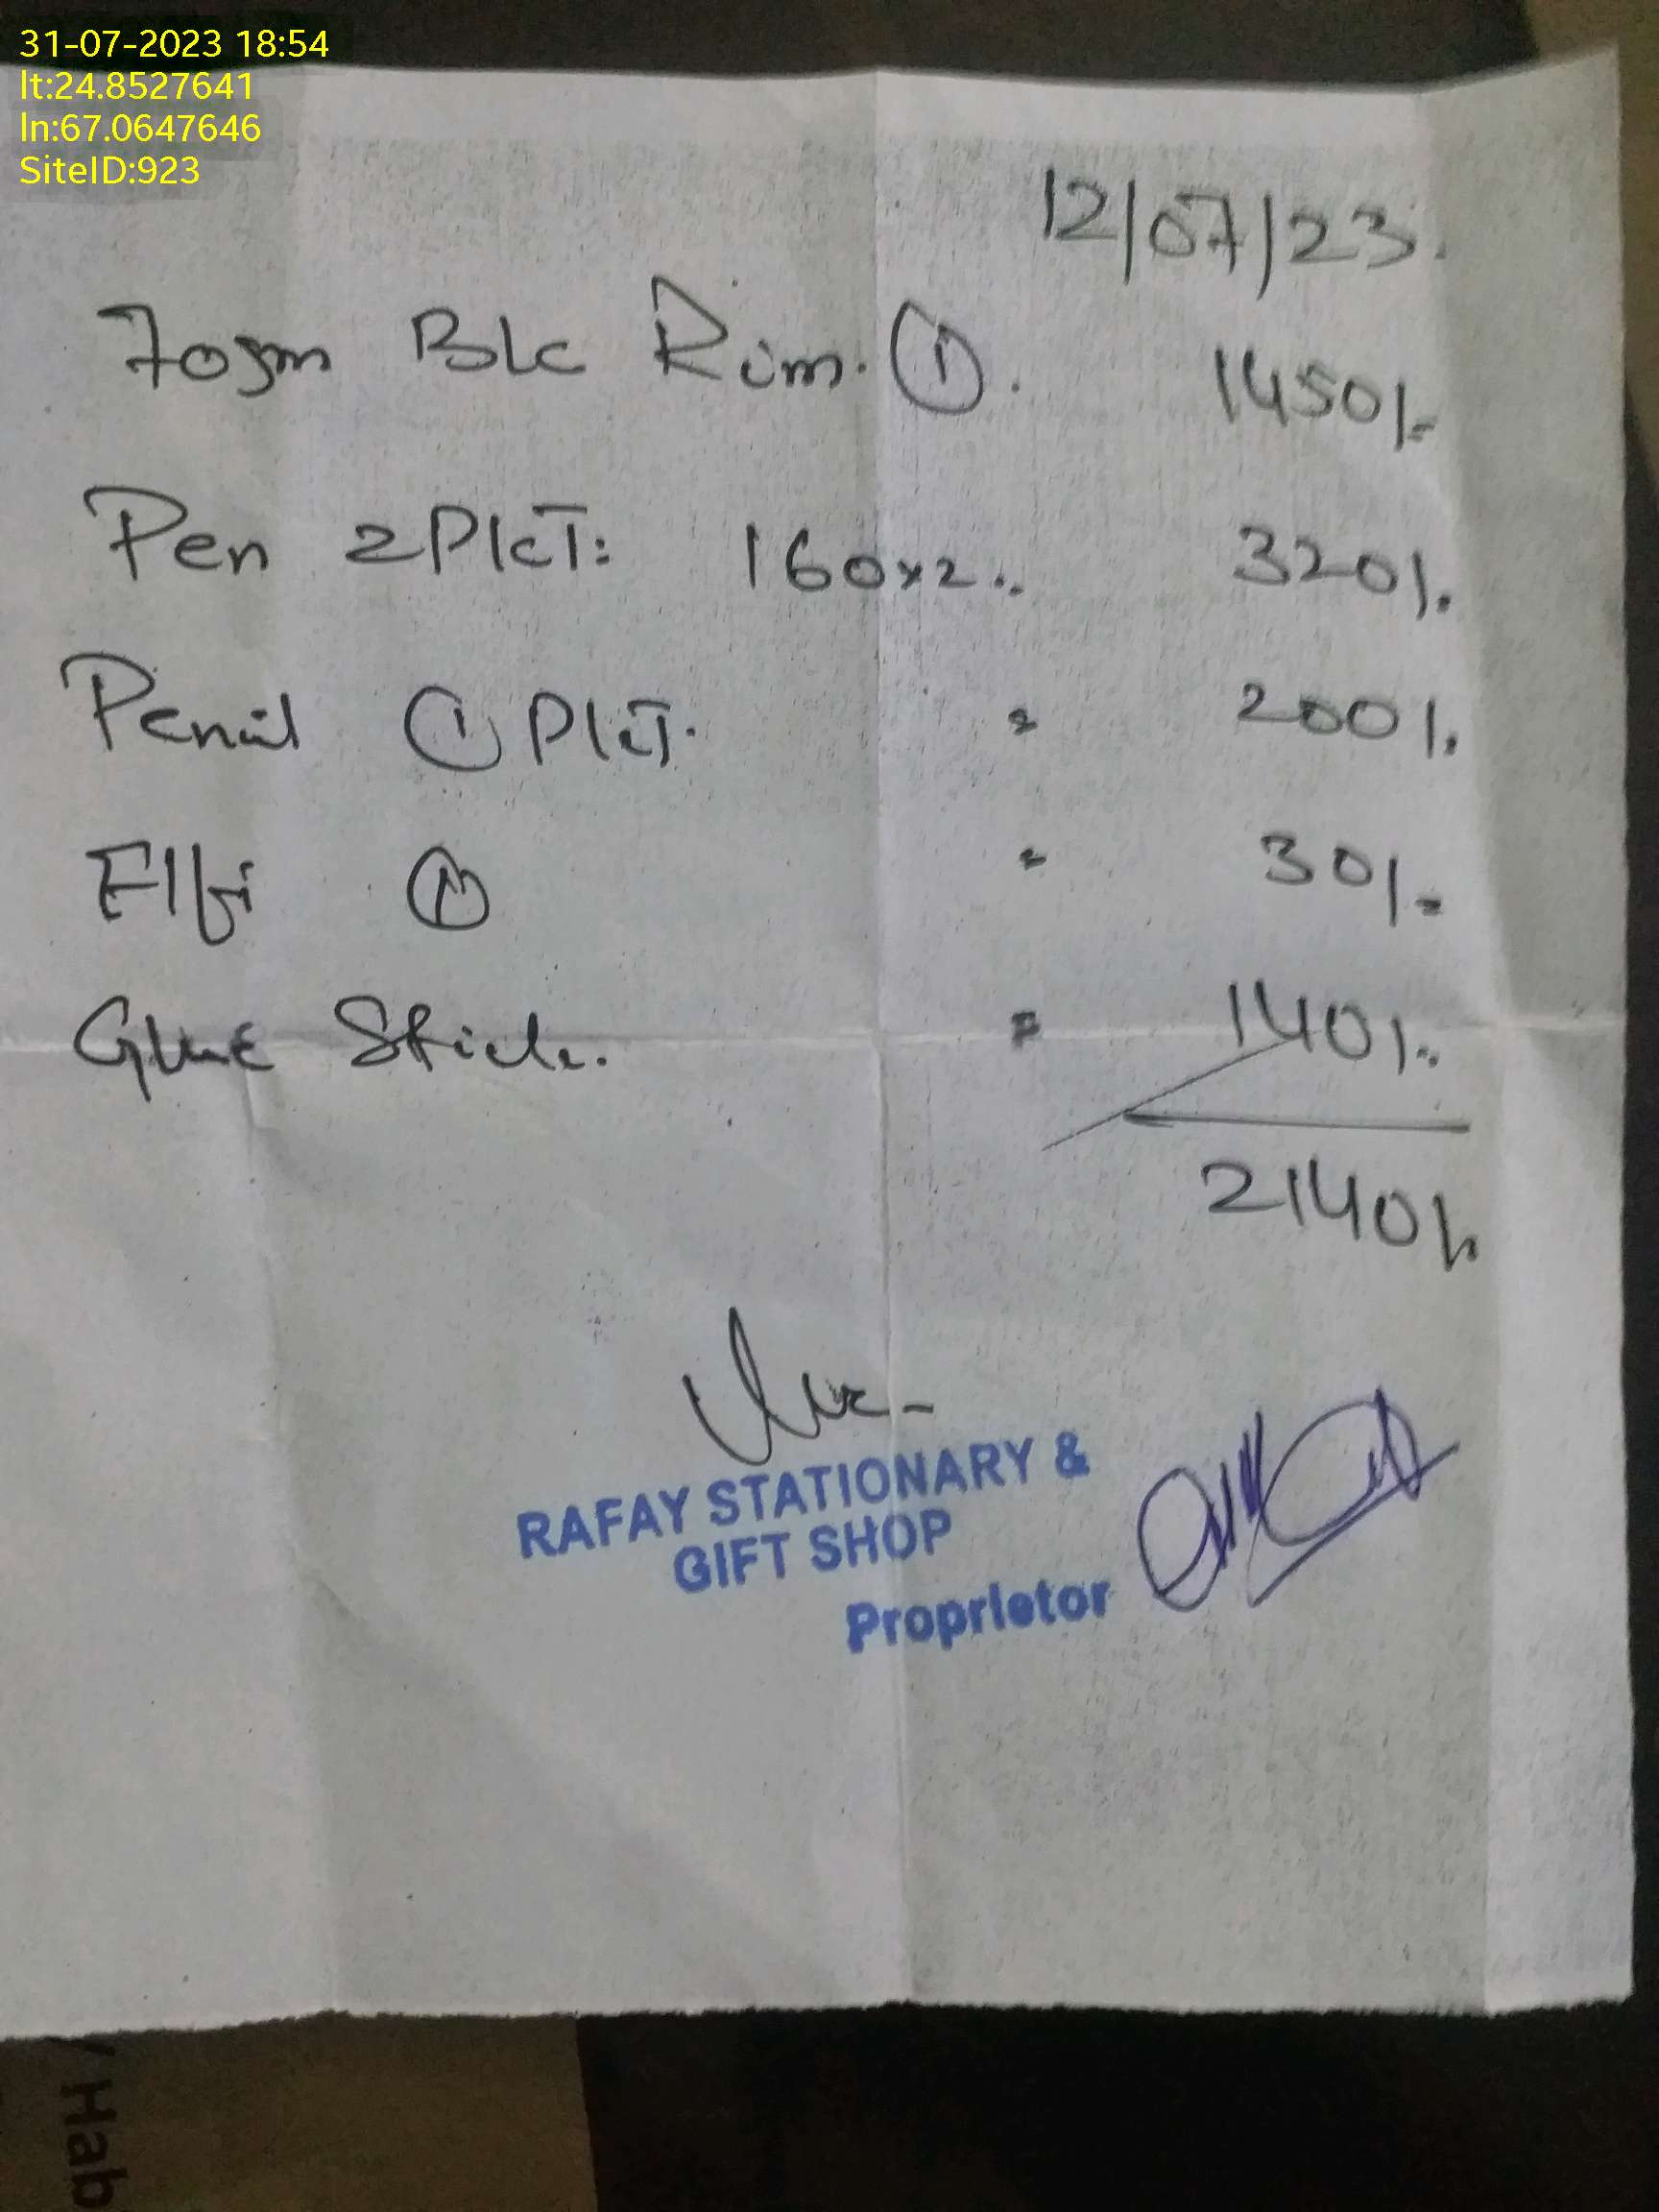 31-07-2023 18:54
lt:24.8527641
ln:67.0647646
SiteID:923
12/07/23.
70gm Blc Rim. ① . 1450/=
Pen 2PkT: 160x2.. 320/.
Pencil ① PkT. = 200/.
Elfi ① = 30/=
Glue Stick. = 140/..
2140/.
RAFAY STATIONARY &
GIFT SHOP
Proprietor
Hab